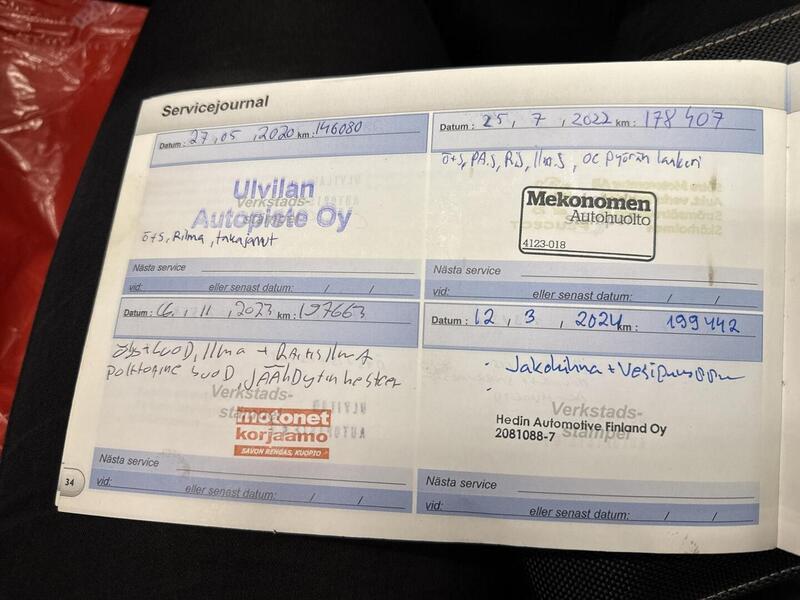 Servicejournal
Datum: 27, 05, 2020 km: 146080
Ulvilan
Autopiste Oy
Verkstads-
stämpel
ö+s, Rilma, takajarrut
Nästa service
vid: eller senast datum: / /
Datum: 25, 7, 2022 km: 178 407
ö+s, PA.S, R.S, Ilm.S, OC pyörän laakeri
Mekonomen
Autohuolto
4123-018
Nästa service
vid: eller senast datum: / /
Datum: 16, 11, 2023 km: 197663
Öljy+suOD, Ilma + RAitisIlmA
polttoaine suOD, JÄÄhDytinnesteet
Verkstads-
stämpel
motonet
korjaamo
SAVON RENGAS, KUOPIO
Nästa service
vid: eller senast datum: / /
Datum: 12, 3, 2024 km: 199442
Jakohihna + Vesipumppu
Verkstads-
stämpel
Hedin Automotive Finland Oy
2081088-7
Nästa service
vid: eller senast datum: / /
34